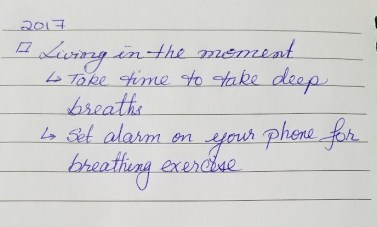 2017
□ Living in the moment
↳ Take time to take deep
breaths
↳ Set alarm on your phone for
breathing exercise